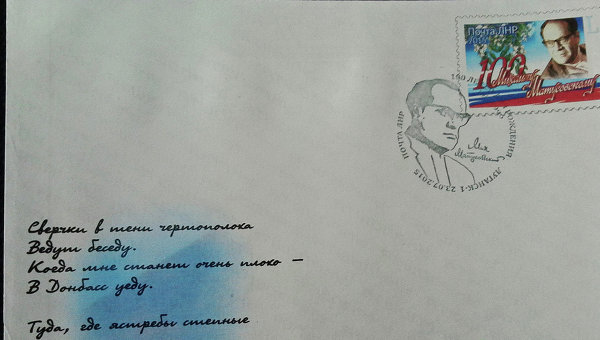 Почта ЛНР
100
Михаилу
Матусовскому
ПОЧТА ЛНР
100 ЛЕТ
РОЖДЕНИЯ
ЛУГАНСК-1 23.07.2015
Мих
Матусовский
Сверчки в тени чертополоха
Ведут беседу.
Когда мне станет очень плохо –
В Донбасс уеду.
Туда, где ястребы степные